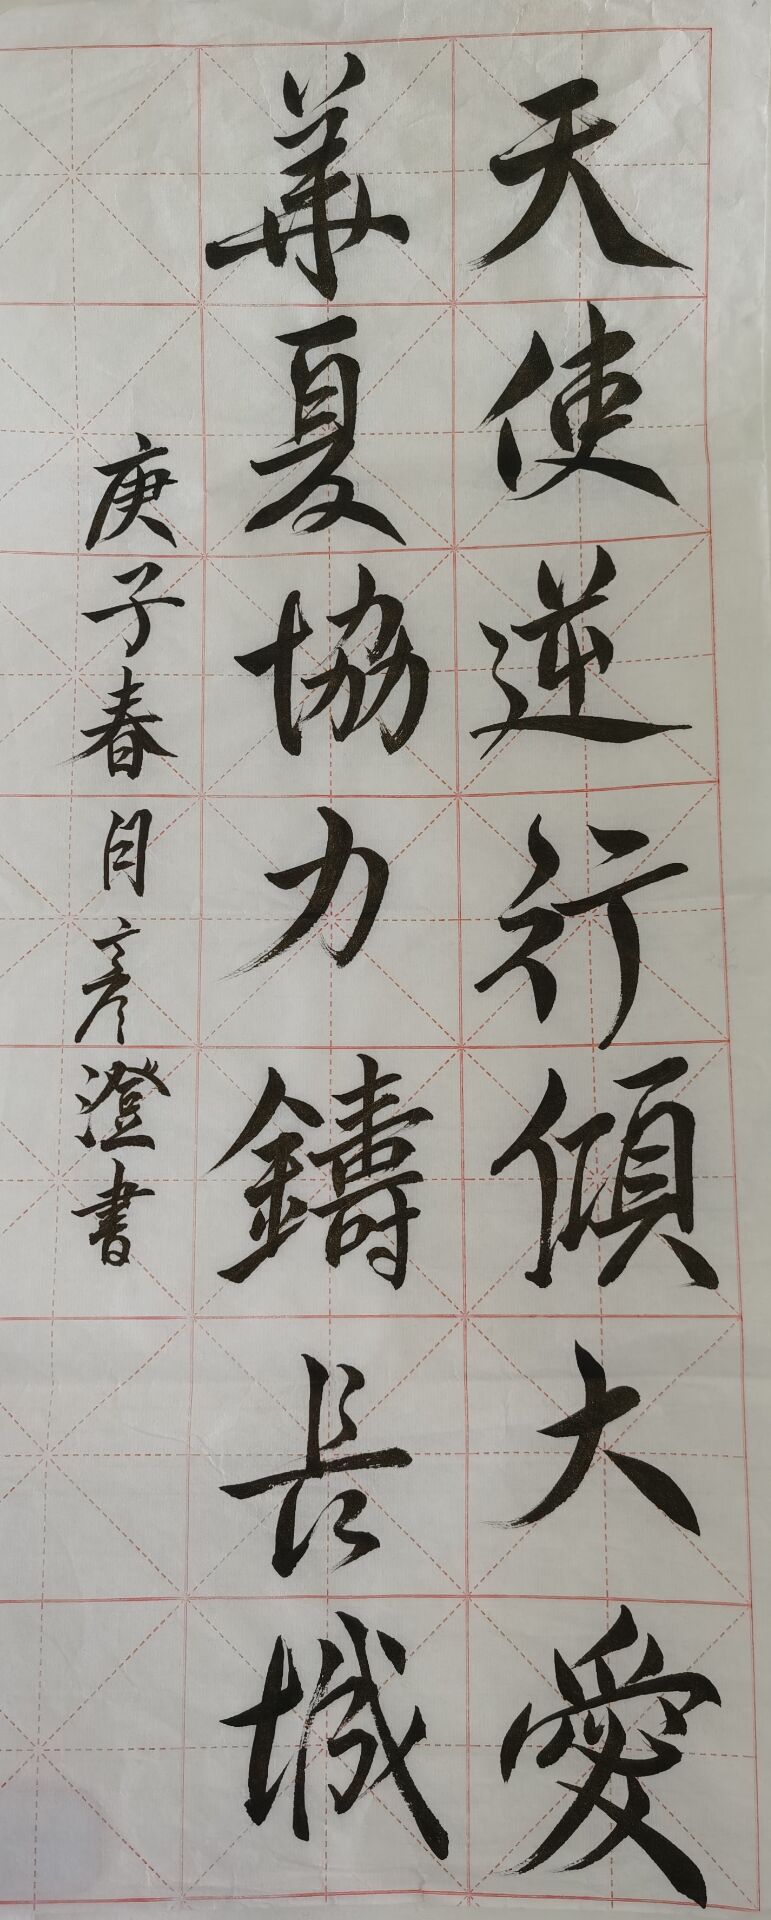 天使逆行傾大愛
華夏協力鑄長城
庚子春月彥澄書